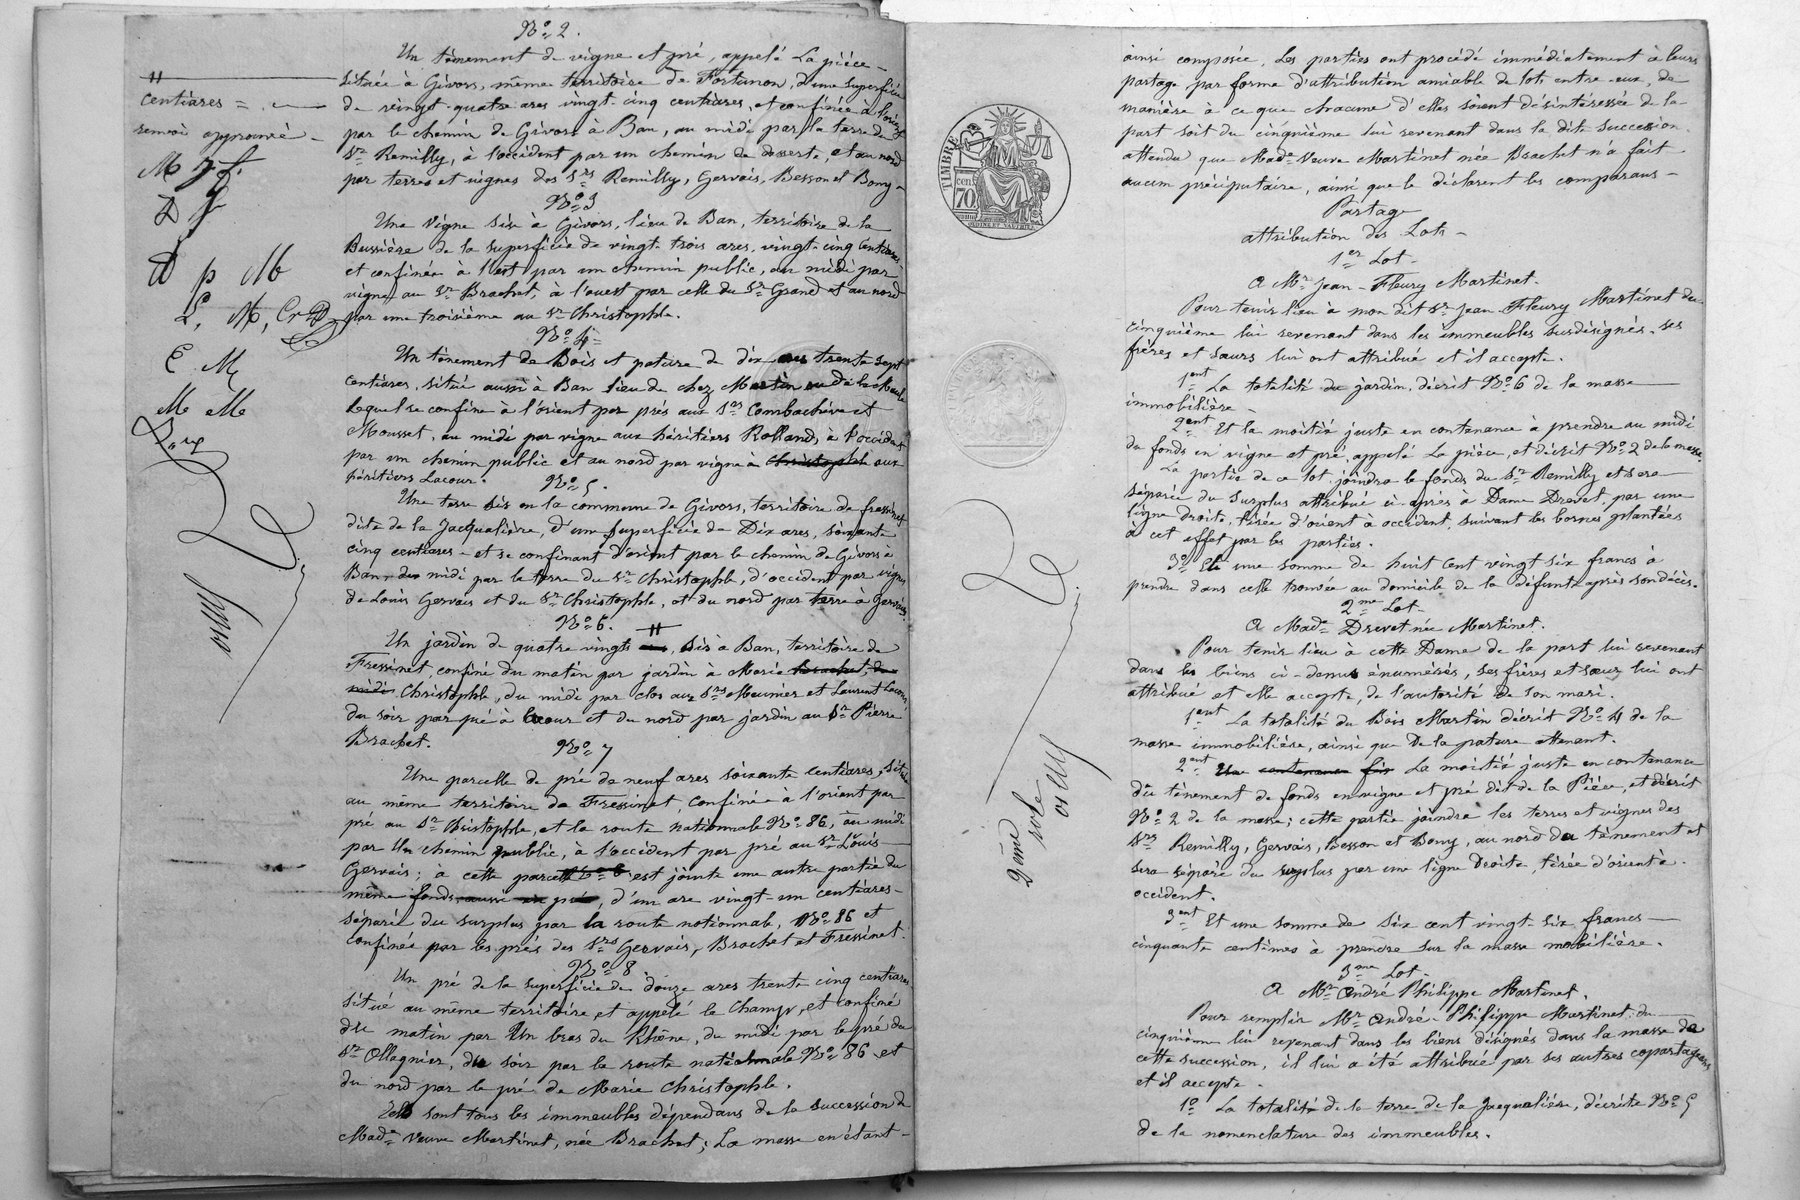 No 2.
Un tènement de vigne et pré, appelé La pièce
située à Givors, même territoire de Fortunon, d'une superficie
de vingt-quatre ares vingt-cinq centiares, et confinée à l'orient
par le chemin de Givors à Ban, au midi par la terre du
Sr Remilly, à l'occident par un chemin de desserte, et au nord
par terres et vignes des Srs Remilly, Gervais, Besson et Bony
No 3
Une vigne sise à Givors, lieu de Ban, territoire de la
Bussière de la superficie de vingt-trois ares, vingt-cinq centiares,
et confinée à l'est par un chemin public, au midi par
vigne au Sr Brachet, à l'ouest par celle du Sr Grand et au nord
par une troisième au Sr Christophle.
No 4
Un tènement de Bois et pature de dix ares trente sept
centiares, situé aussi à Ban lieu de chez Martin ou de la
Lequel se confine à l'orient par prés aux Srs Combachive et
Mousset, au midi par vigne aux héritiers Rolland, à l'occident
par un chemin public et au nord par vigne à Christophle aux
héritiers Lacour.
No 5.
Une terre sis en la commune de Givors, territoire de Fressinet
dite de la Jacqualière, d'une superficie de Dix ares, soixante
cinq centiares - et se confinant d'orient par le chemin de Givors à
Ban, du midi par la terre du Sr Christophle, d'occident par vigne
de Louis Gervais et du Sr Christophle, et du nord par terre à Gervais.
No 6.
Un jardin de quatre vingt , sis à Ban, territoire de
Fressinet, confiné du matin par jardin à Marie Brachet, du
midi Christophle, du midi par clos aux Srs Meunier et Laurent Lacour,
du soir par pré à Lacour et du nord par jardin au Sr Pierre
Brachet.
No 7
Une parcelle de pré de neuf ares soixante centiares, située
au même territoire de Fressinet, confinée à l'orient par
pré au Sr Christophle, et la route nationale No 86, au midi
par Un chemin public, à l'occident par pré au Sr Louis
Gervais; à cette parcelle No 6 est jointe une autre partie du
même fonds aussi en pré, d'un are vingt-un centiares
séparé du surplus par la route nationale, No 86 et
confinée par les prés des Srs Gervais, Brachet et Fressinet.
No 8
Un pré de la superficie de douze ares trente cinq centiares
situé au même territoire et appelé le Champ, et confiné
du matin par Un bras du Rhône, du midi par le pré du
Sr Ollagnier, du soir par la route nationale No 86 et
du nord par le pré de Marie Christophle.
Tels sont tous les immeubles dépendans de la succession de
Made Veuve Martinet, née Brachet; La masse en étant
centiares =
renvoi approuvé
M J f.
D J
D p M
L, M, Cr D
E M
M M
ainsi composée, Les parties ont procédé immédiatement à leurs
partage par forme d'attribution amiable de lot entre eux, de
manière à ce que chacune d'elles soient désintéressée de la
part soit du cinquième lui revenant dans la dite succession,
attendu que Made Veuve Martinet née Brachet n'a fait
aucun préciputaire, ainsi que le déclarent les comparans
Partage
attribution des Lots
1er Lot
A Mr Jean-Fleury Martinet.
Pour tenir lieu à mon dit Sr Jean Fleury Martinet du
cinquième lui revenant dans les immeubles susdésignés, ses
frères et sœurs lui ont attribué et il accepte.
1ent La totalité du jardin, décrit No 6 de la masse
immobilière
2ent Et la moitié juste en contenance à prendre au midi
du fonds en vigne et pré, appelé La pièce, et décrit No 2 de la masse.
La partie de ce lot joindra le fonds du Sr Remilly et sera
séparée du surplus attribué ci-après à Dame Drevet, par une
ligne droite, tirée d'orient à occident, suivant les bornes plantées
à cet effet par les parties.
3o Et une somme de huit cent vingt six francs à
prendre dans celle trouvée au domicile de la défunte après son décès.
2me Lot
A Made Drevet née Martinet.
Pour tenir lieu à cette Dame de la part lui revenant
dans les biens ci-dessus énumérés, ses frères et sœurs lui ont
attribué et elle accepte, de l'autorité de son mari.
1ent La totalité du Bois Martin décrit No 4 de la
masse immobilière, ainsi que de la pature attenant.
2ent Une contenance fix La moitié juste en contenance
du tènement de fonds en vigne et pré dit de la Pièce, et décrit
No 2 de la masse; cette partie joindra les terres et vignes des
Srs Remilly, Gervais, Besson et Bony, au nord du tènement et
sera séparé du surplus par une ligne Droite, tirée d'orient à
occident.
3ent Et une somme de six cent vingt-six francs
cinquante centimes à prendre sur la masse mobilière.
3me Lot
A Mr André Philippe Martinet.
Pour remplir Mr André-Philippe Martinet du
cinquième lui revenant dans les biens désignés dans la masse de
cette succession, il lui a été attribué par ses autres copartageans
et il accepte.
1o La totalité de la terre de la Jacqualière, décrite No 5
de la nomenclature des immeubles.
TIMBRE
70 cen.
2ème
role